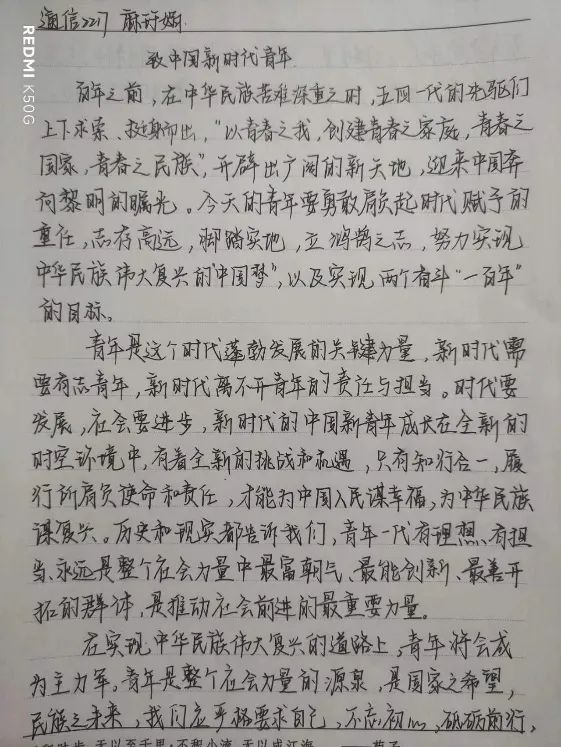 REDMI K50G
通信2217 麻
致中国新时代青年
百年之前，在中华民族苦难深重之时，五四一代的先驱们
上下求索、挺身而出，“以青春之我，创建青春之家庭，青春之
国家，青春之民族”，开辟出广阔的新天地，迎来中国奔
向黎明的曙光。今天的青年要勇敢肩负起时代赋予的
重任，志存高远，脚踏实地，立鸿鹄之志，努力实现
中华民族伟大复兴的“中国梦”，以及实现两个奋斗“一百年”
的目标。
青年是这个时代蓬勃发展的关键力量，新时代需
要有志青年，新时代离不开青年的责任与担当。时代要
发展，社会要进步，新时代的中国新青年成长在全新的
时空环境中，有着全新的挑战和机遇，只有知行合一，履
行所肩负使命和责任，才能为中国人民谋幸福，为中华民族
谋复兴。历史和现实都告诉我们，青年一代有理想、有担
当、永远是整个社会力量中最富朝气、最能创新、最善开
拓的群体，是推动社会前进的最重要力量。
在实现中华民族伟大复兴的道路上，青年将会成
为主力军。青年是整个社会力量的源泉，是国家之希望，
民族之未来，我们应严格要求自己，不忘初心，砥砺前行，